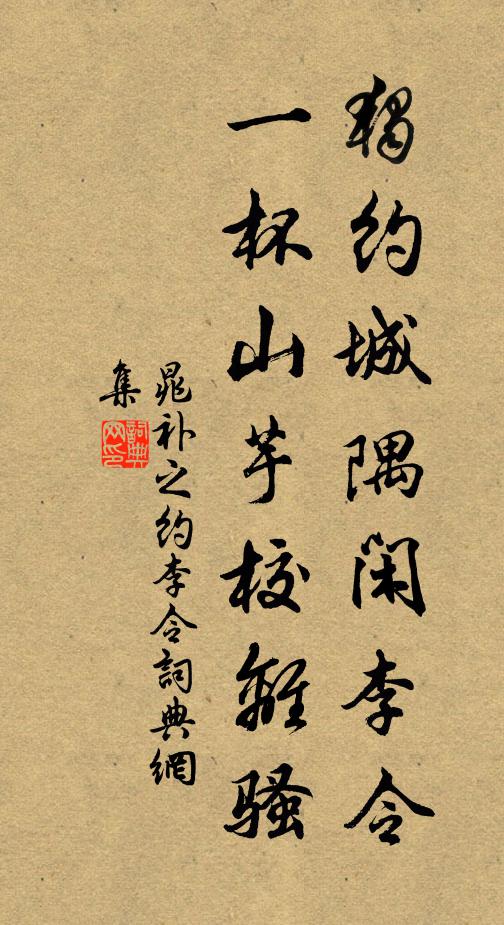 獨約城隅閑李令
一杯山芋校離騷
晁补之约李令詞典網
集
詞典
网印